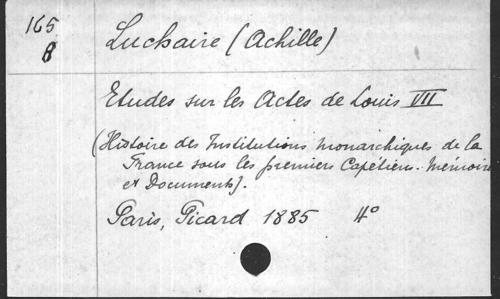 165
8
Luchaire (Achille)
Etudes sur les Actes de Louis VII
(Histoire des Institutions monarchiques de la
France sous les premiers Capétiens. Mémoire
et Documents).
Paris, Picard 1885 4°